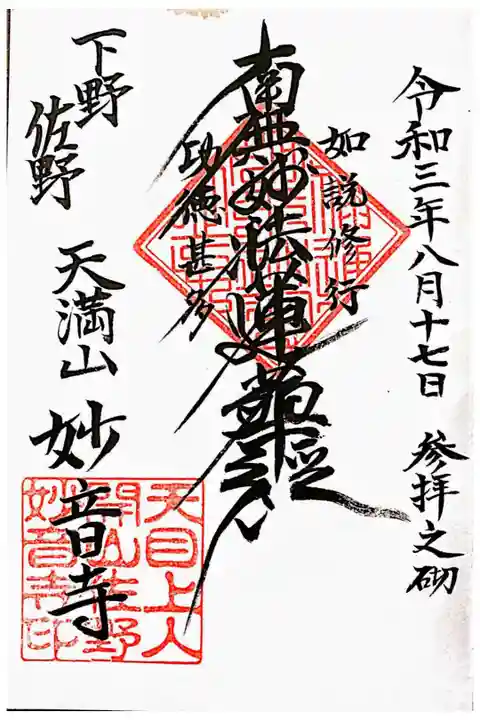 令和三年八月十七日 参拝之砌
如説修行
南無妙法蓮華経
功徳甚多
下野
佐野 天満山 妙音寺
天目上人
開山佐野
妙音寺印